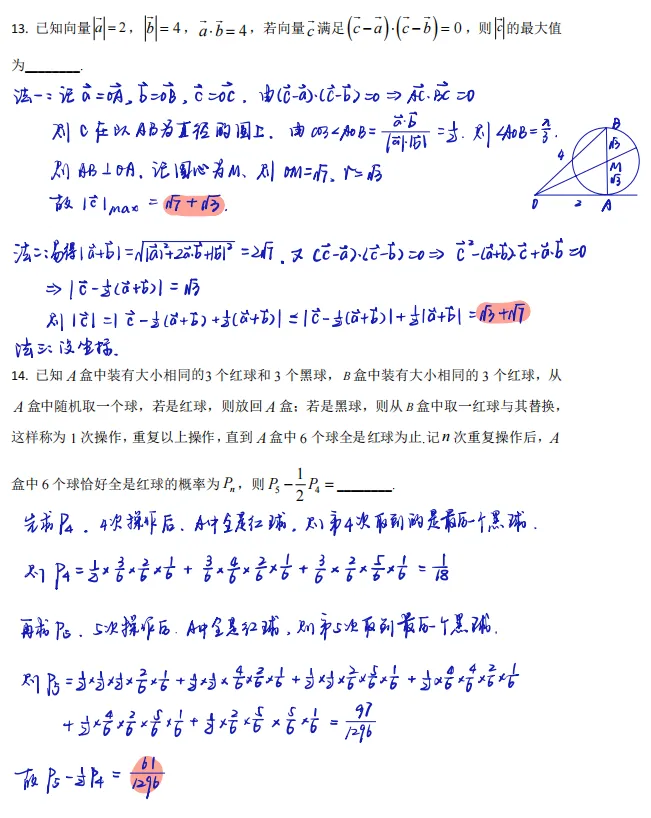 13. 已知向量|a⃗|=2，|b⃗|=4，a⃗·b⃗=4，若向量c⃗满足(c⃗-a⃗)·(c⃗-b⃗)=0，则|c⃗|的最大值
为________.
法一：记a⃗=OA⃗，b⃗=OB⃗，c⃗=OC⃗，由(c⃗-a⃗)·(c⃗-b⃗)=0⇒AC⃗·BC⃗=0
则C在以AB为直径的圆上，由cos∠AOB=a⃗·b⃗/(|a⃗|·|b⃗|)=1/2. 则∠AOB=π/3.
则AB⊥OA，记圆心为M，则OM=√7，r=√3
故|c⃗|max=√7+√3.
B
√3
4
M
√3
O
2
A
法二：易得|a⃗+b⃗|=√(|a⃗|²+2a⃗·b⃗+|b⃗|²)=2√7，又(c⃗-a⃗)·(c⃗-b⃗)=0⇒c⃗²-(a⃗+b⃗)·c⃗+a⃗·b⃗=0
⇒|c⃗-1/2(a⃗+b⃗)|=√3
则|c⃗|=|c⃗-1/2(a⃗+b⃗)+1/2(a⃗+b⃗)|≤|c⃗-1/2(a⃗+b⃗)|+1/2|a⃗+b⃗|=√3+√7
法三：设坐标.
14. 已知 A 盒中装有大小相同的3 个红球和 3 个黑球，B 盒中装有大小相同的 3 个红球，从
A 盒中随机取一个球，若是红球，则放回 A 盒；若是黑球，则从 B 盒中取一红球与其替换，
这样称为 1 次操作，重复以上操作，直到 A 盒中 6 个球全是红球为止.记 n 次重复操作后，A
盒中 6 个球恰好全是红球的概率为 Pₙ，则 P₅-1/2P₄=________.
先求P₄，4次操作后，A中全是红球，则第4次取到的是最后一个黑球.
则P₄=1/2×3/6×2/6×1/6+3/6×4/6×2/6×1/6+3/6×2/6×5/6×1/6=1/18
再求P₅，5次操作后，A中全是红球，则第5次取到最后一个黑球.
则P₅=1/2×1/2×1/2×2/6×1/6+1/2×1/2×4/6×2/6×1/6+1/2×1/2×2/6×5/6×1/6+1/2×4/6×4/6×2/6×1/6
+1/2×4/6×2/6×5/6×1/6+1/2×2/6×5/6×5/6×1/6=97/1296
故P₅-1/2P₄=61/1296